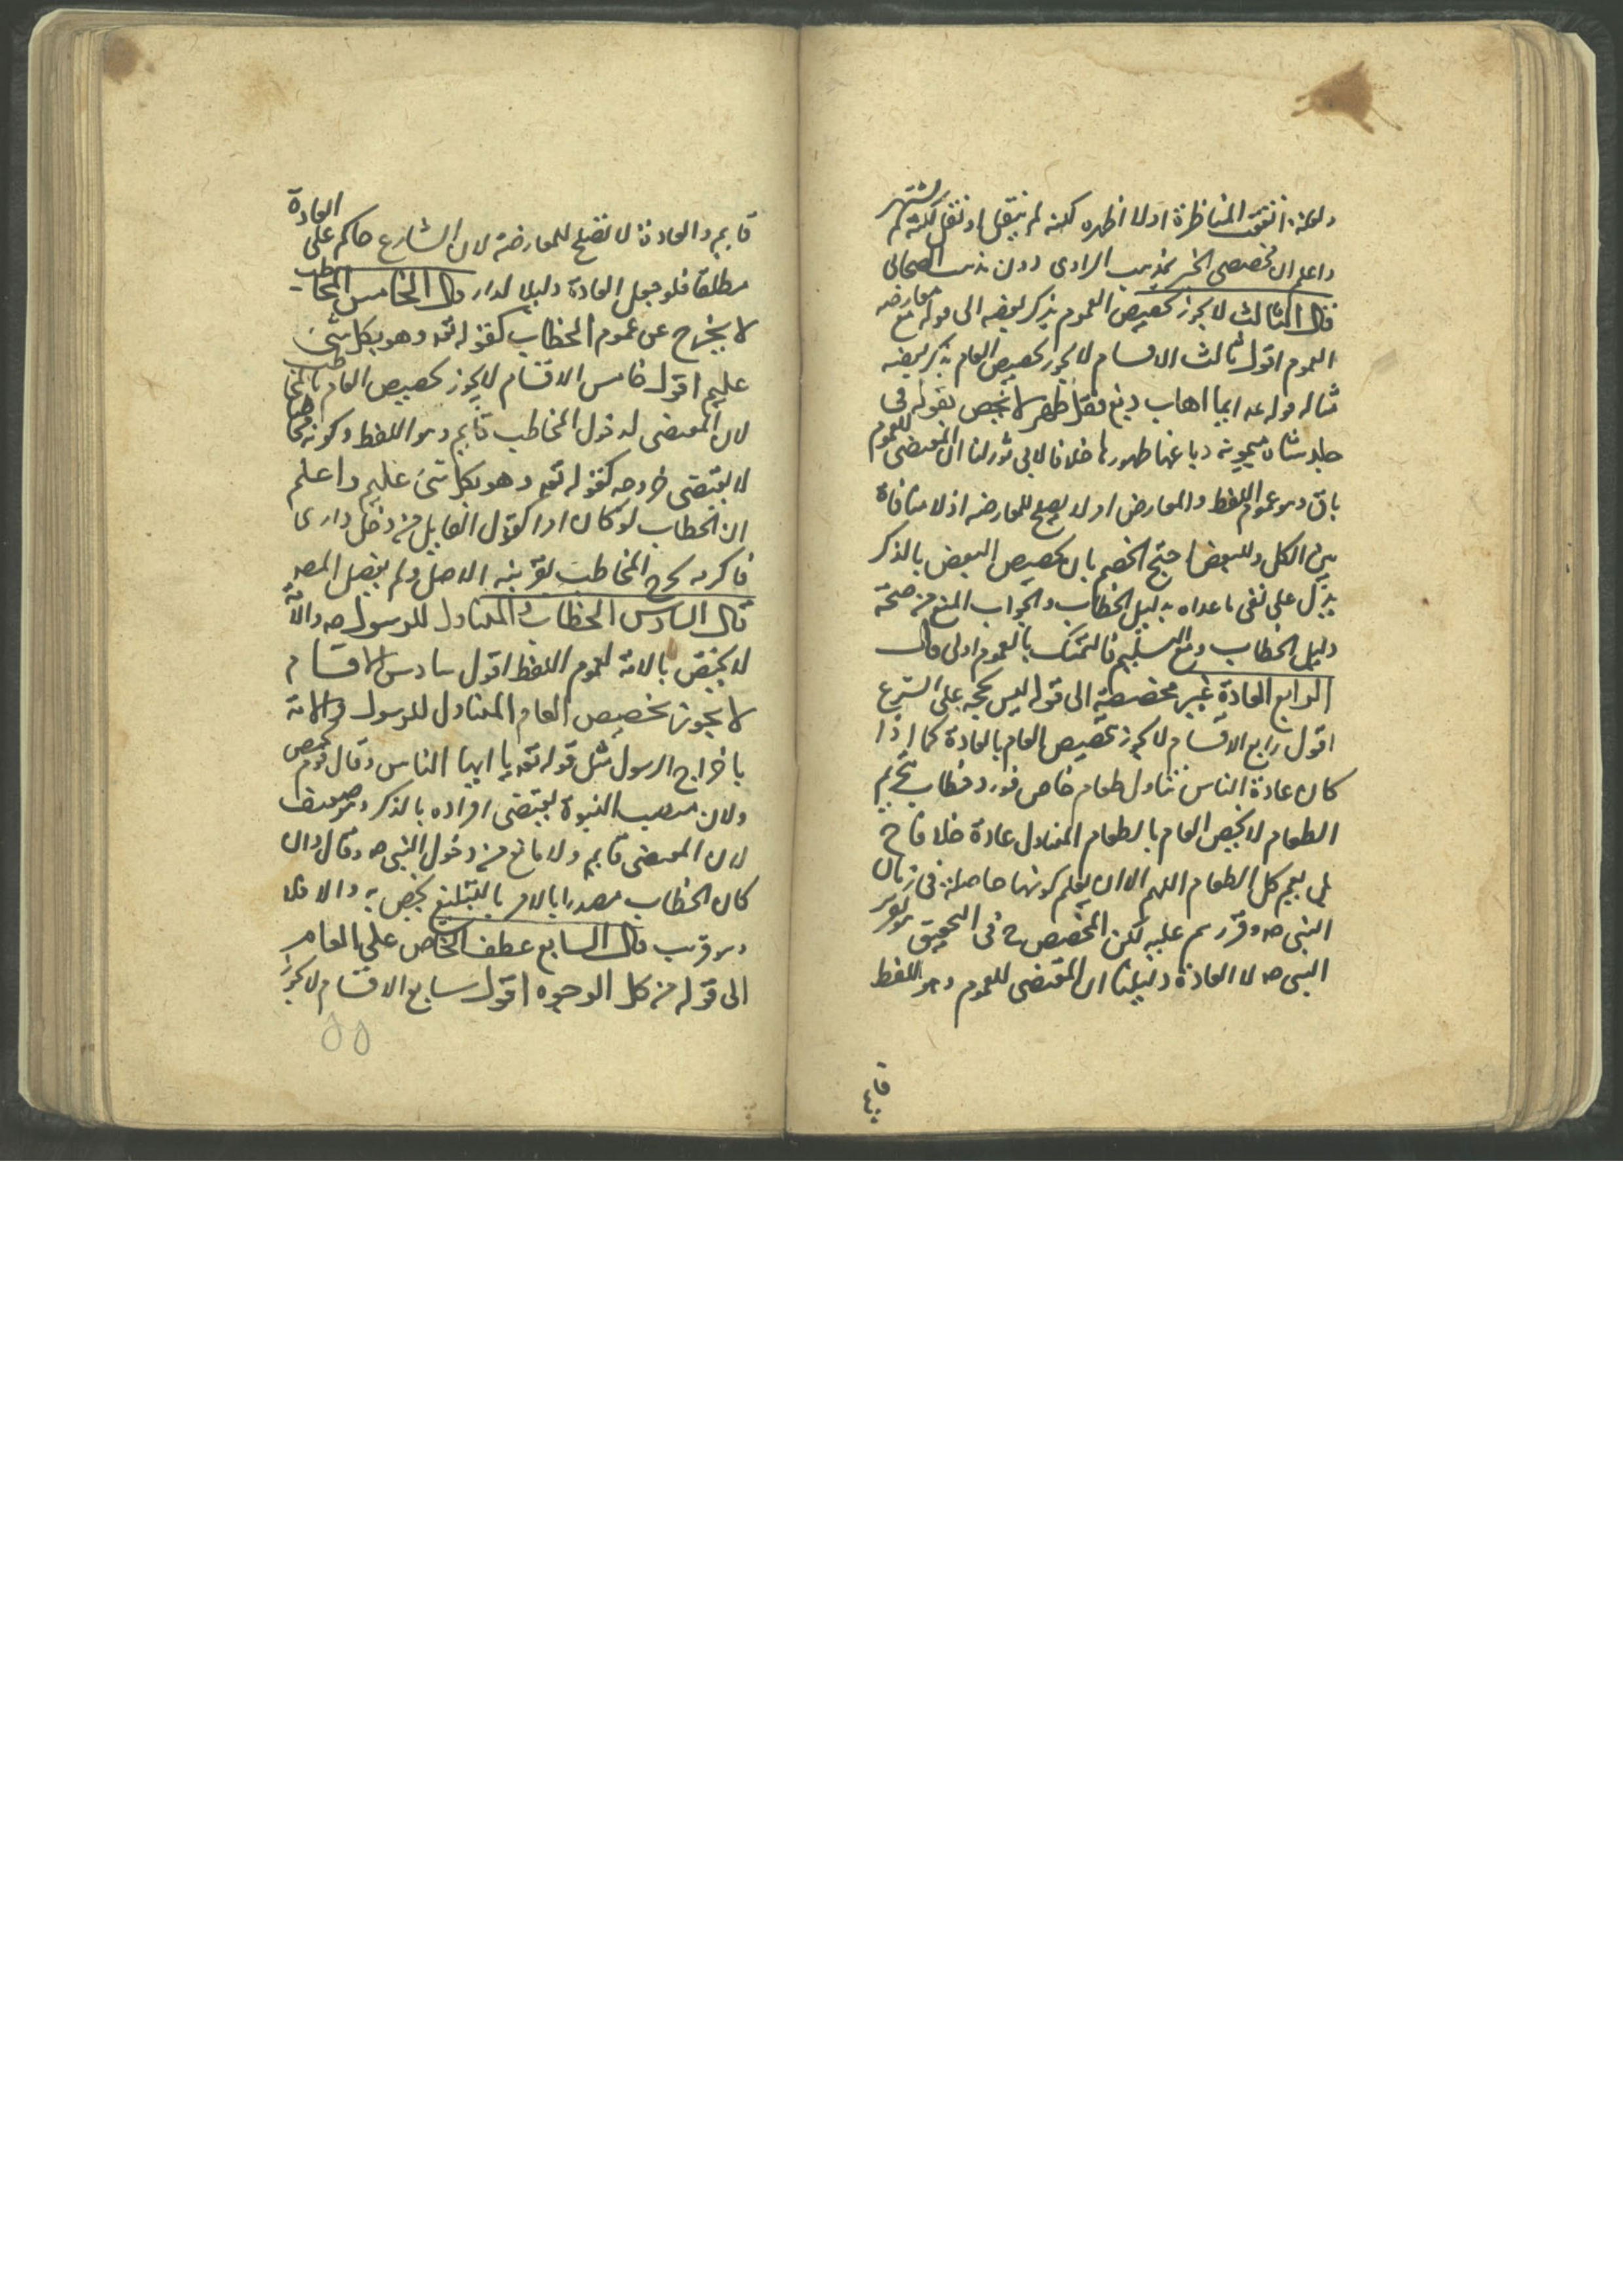 ولعله اتفقت المناظرة اولا اظهره لكنه لم ينقل او نقل لكنه لم يشتهر
واعلم ان تخصيص الخبر بمذهب الراوى دون مذهب الصحابى
قال الثالث لا يجوز تخصيص العموم بذكر بعضه الى قوله مع معارضه
العموم اقول ثالث الاقسام لا يجوز تخصيص العام بذكر بعضه
مثاله قوله عه ايما اهاب دبغ فقد طهر لا يخص بقوله فى
جلد شاة ميمونه دباغها طهورها خلافا لابى ثور لنا ان المقتضى للعموم
باق وهو عموم اللفظ والمعارض لا يصلح للمعارضه اذ لا منافاة
بين الكل والبعض احتج الخصم بان تخصيص البعض بالذكر
يدل على نفى ما عداه بدليل الخطاب والجواب المنع من صحة
دليل الخطاب ومع التسليم فالتمسك بالعموم اولى قال
الرابع العادة غير مخصصة الى قوله ليس بحجه على الشرع
اقول رابع الاقسام لا يجوز تخصيص العام بالعادة كما اذا
كان عادة الناس تناول طعام خاص فورد خطاب بتحريم
الطعام لا يخص العام بالطعام المتناول عادة خلافا ح
بل يعم كل الطعام اللهم الا ان يعلم كونها حاصلة فى زمان
النبى صه وقررهم عليه لكن المخصص ح فى التحقيق تقرير
النبى صه لا العادة دليلنا ان المقتضى للعموم وهو اللفظ
قايم والعادة لا تصلح للمعارضة لان الشارع حاكم على العادة
مطلقا فلو جعل العادة دليلا لدار قال الخامس المخاطب
لا يخرج عن عموم الخطاب كقوله تعه وهو بكل شئ
عليم اقول خامس الاقسام لا يجوز تخصيص العام بالمخاطب
لان المقتضى لدخول المخاطب قايم وهو اللفظ وكونه مخاطبا
لا يقتضى خروجه كقوله تعه وهو بكل شئ عليم واعلم
ان الخطاب لو كان امرا كقول القايل من دخل دارى
فاكرمه يخرج المخاطب بقرينه الاصل ولم يفصل المصه
قال السادس الخطاب المتناول للرسول صه والامة
لا يختص بالامة لعموم اللفظ اقول سادس الاقسام
لا يجوز تخصيص العام المتناول للرسول والامة
باخراج الرسول مثل قوله تعه يا ايها الناس وقال قوم يخصص
ولان منصب النبوة يقتضى افراده بالذكر وهو ضعيف
لان المقتضى قايم ولا مانع من دخول النبى صه وقال ان
كان الخطاب مصدرا بالامر بالتبليغ يخص به والا فلا
وهو قريب قال السابع عطف الخاص على العام
الى قوله من كل الوجوه اقول سابع الاقسام لا يجوز
٥٥